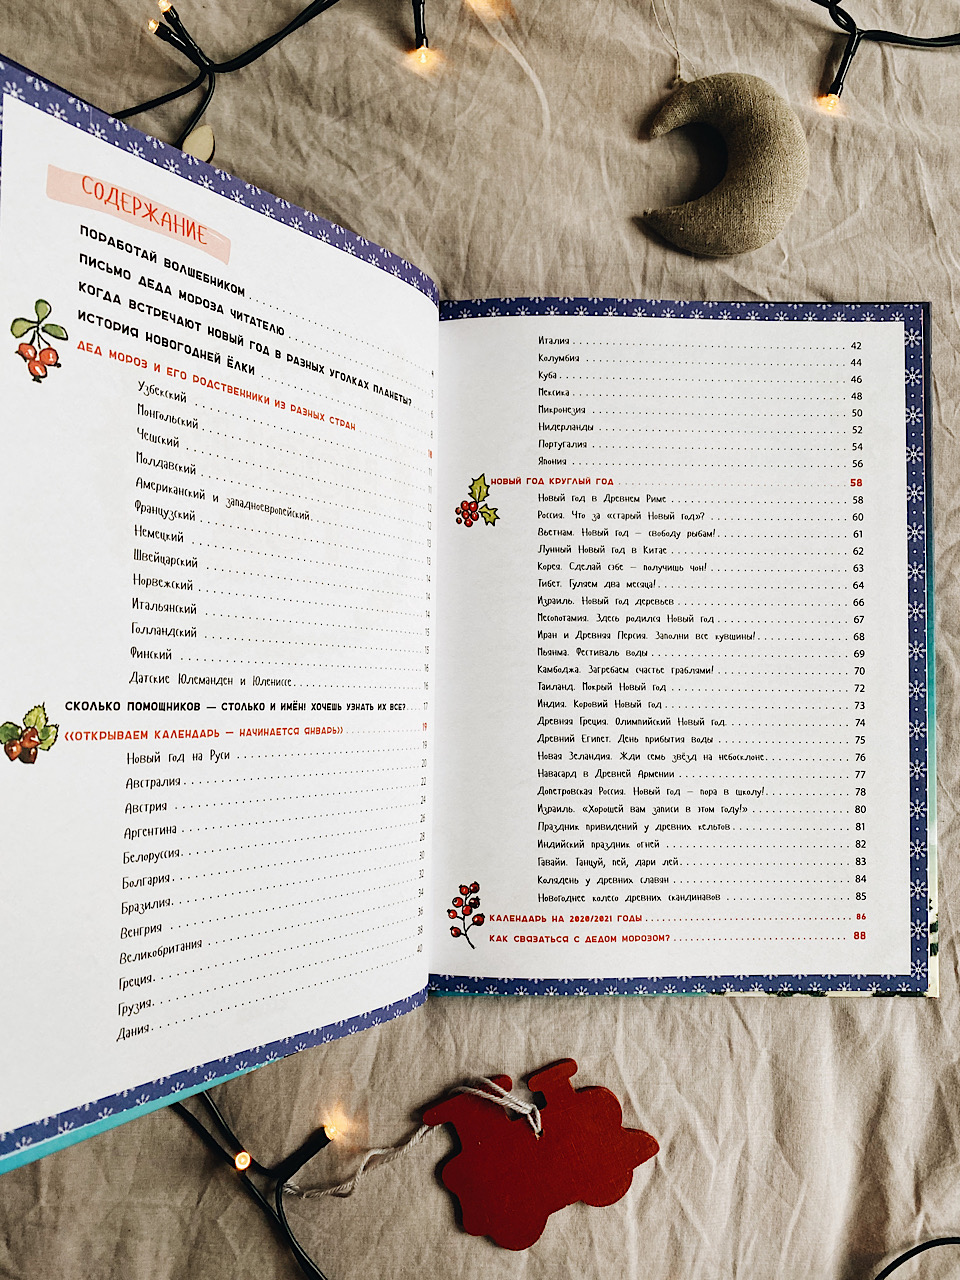 СОДЕРЖАНИЕ
ПОРАБОТАЙ ВОЛШЕБНИКОМ
ПИСЬМО ДЕДА МОРОЗА ЧИТАТЕЛЮ 4
КОГДА ВСТРЕЧАЮТ НОВЫЙ ГОД В РАЗНЫХ УГОЛКАХ ПЛАНЕТЫ?
ИСТОРИЯ НОВОГОДНЕЙ ЁЛКИ
ДЕД МОРОЗ И ЕГО РОДСТВЕННИКИ ИЗ РАЗНЫХ СТРАН
Узбекский
Монгольский
Чешский
Молдавский
Американский и западноевропейский
Французский
Немецкий
Швейцарский
Норвежский
Итальянский
Голландский
Финский
Датские Юлеманден и Юлениссе 16
СКОЛЬКО ПОМОЩНИКОВ — СТОЛЬКО И ИМЁН! ХОЧЕШЬ УЗНАТЬ ИХ ВСЕ? 17
«ОТКРЫВАЕМ КАЛЕНДАРЬ — НАЧИНАЕТСЯ ЯНВАРЬ» 19
Новый год на Руси 19
Австралия 20
Австрия 22
Аргентина 24
Белоруссия 26
Болгария 28
Бразилия 30
Венгрия 32
Великобритания 34
Греция 36
Грузия 38
Дания 40
Италия 42
Колумбия 44
Куба 46
Мексика 48
Микронезия 50
Нидерланды 52
Португалия 54
Япония 56
НОВЫЙ ГОД КРУГЛЫЙ ГОД 58
Новый год в Древнем Риме 58
Россия. Что за «старый Новый год»? 60
Вьетнам. Новый год — свободу рыбам! 61
Лунный Новый год в Китае 62
Корея. Сделай сэбе — получишь чон! 63
Тибет. Гуляем два месяца! 64
Израиль. Новый год деревьев 66
Месопотамия. Здесь родился Новый год 67
Иран и Древняя Персия. Заполни все кувшины! 68
Мьянма. Фестиваль воды 69
Камбоджа. Загребаем счастье граблями! 70
Таиланд. Мокрый Новый год 72
Индия. Коровий Новый год 73
Древняя Греция. Олимпийский Новый год 74
Древний Египет. День прибытия воды 75
Новая Зеландия. Жди семь звёзд на небосклоне 76
Навасард в Древней Армении 77
Допетровская Россия. Новый год — пора в школу! 78
Израиль. «Хорошей вам записи в этом году!» 80
Праздник привидений у древних кельтов 81
Индийский праздник огней 82
Гавайи. Танцуй, пей, дари лей 83
Колядень у древних славян 84
Новогоднее колесо древних скандинавов 85
КАЛЕНДАРЬ НА 2020/2021 ГОДЫ 86
КАК СВЯЗАТЬСЯ С ДЕДОМ МОРОЗОМ? 88